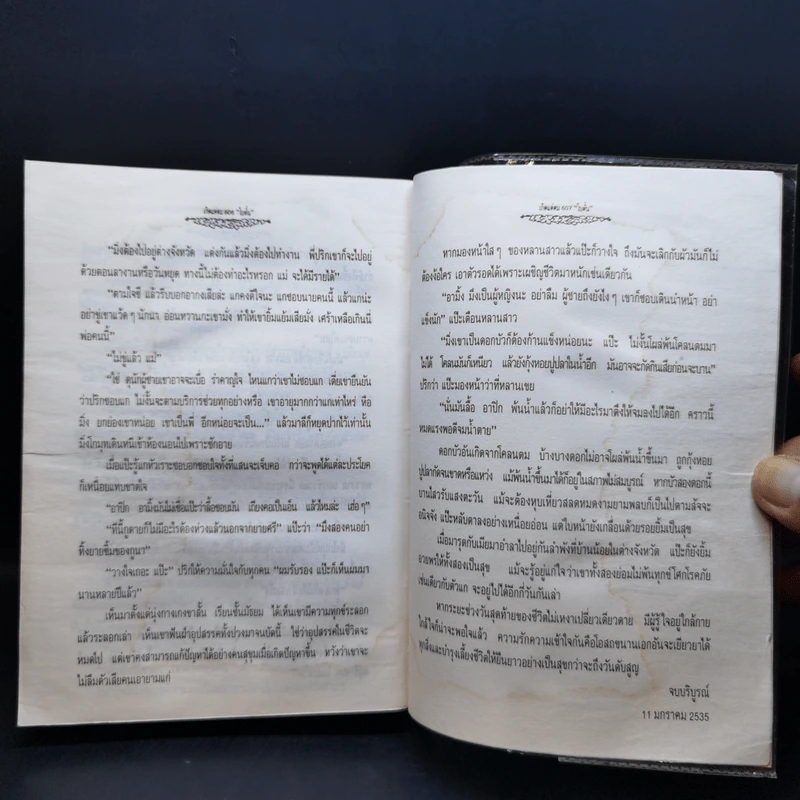 "มิ่งต้องไปอยู่ต่างจังหวัด แต่งกันแล้วมิ่งต้องไปทำงาน พี่ปริกเขาก็จะไปอยู่
ด้วยตอนลางานหรือวันหยุด ทางนี้ไม่ต้องทำอะไรหรอก แม่ จะได้มีรายได้"
"ตามใจซี แล้วรีบบอกอากงเสียล่ะ แกคงดีใจนะ แกชอบนายคนนี้ แล้วแกน่ะ
อย่าขู่เขาแว้ด ๆ นักนา อ่อนหวานกะเขามั่ง ทำให้เขายิ้มแย้มเสียมั่ง เศร้าเหลือเกินนี่
พ่อคนนี้"
"ไม่ขู่แล้ว แม่"
"ใช่ ดุนักผู้ชายเขาอาจจะเบื่อ รำคาญใจ ไหนแกว่าเขาไม่ชอบแก เตี่ยเขายืนยัน
ว่าปริกชอบแก ไม่งั้นจะตามบริการช่วยทุกอย่างหรือ เขาอายุมากกว่าแกเท่าไหร่ หือ
มิ่ง ยกย่องเขาหน่อย เขาเป็นพี่ อีกหน่อยจะเป็น..." แล้วมาลีก็หยุดปากไว้เท่านั้น
มิ่งโกมุทเดินหนีเข้าห้องนอนไปเพราะชักอาย
เมื่อแป๊ะรู้แกหัวเราะชอบอกชอบใจทั้งที่แสนจะเจ็บคอ กว่าจะพูดได้แต่ละประโยค
ก็เหนื่อยแทบขาดใจ
"อาปิก อามิ้งมันไม่เชื่อแป๊ะว่าลื้อชอบมัน เถียงคอเป็นเอ็น แล้วไหมล่ะ เฮ่อๆ"
"ทีนี้กูตายก็ไม่มีอะไรต้องห่วงแล้วนอกจากยายศรี" แป๊ะว่า "มึงสองคนอย่า
ทิ้งยายซิ้มของกูนา"
"วางใจเถอะ แป๊ะ" ปริกให้ความมั่นใจกับทุกคน "ผมรับรอง แป๊ะก็เห็นผมมา
นานหลายปีแล้ว"
เห็นมาตั้งแต่นุ่งกางเกงขาสั้น เรียนชั้นมัธยม ได้เห็นเขามีความทุกข์ระลอก
แล้วระลอกเล่า เห็นเขาฟันฝ่าอุปสรรคทั้งปวงมาจนบัดนี้ ใช่ว่าอุปสรรคในชีวิตจะ
หมดไป แต่เขาคงสามารถแก้ปัญหาได้อย่างคนสุขุมเมื่อเกิดปัญหาขึ้น หวังว่าเขาจะ
ไม่ลืมตัวเสียคนเอายามแก่
หากมองหน้าใส ๆ ของหลานสาวแล้วแป๊ะก็วางใจ ถึงมันจะเลิกกับผัวมันก็ไม่
ต้องง้อใคร เอาตัวรอดได้เพราะเผชิญชีวิตมาหนักเช่นเดียวกัน
"อามิ้ง มึงเป็นผู้หญิงนะ อย่าลืม ผู้ชายถึงยังไงๆ เขาก็ชอบเดินนำหน้า อย่า
แข็งนัก" แป๊ะเตือนหลานสาว
"มิ่งเขาเป็นดอกบัวก็ต้องก้านแข็งหน่อยนะ แป๊ะ ไม่งั้นโผล่พ้นโคลนตมมา
ไม่ได้ โคลนมันก็เหนียว แล้วยังกุ้งหอยปูปลาในน้ำอีก มันอาจจะกัดกินเสียก่อนจะบาน"
ปริกว่า แป๊ะมองหน้าว่าที่หลานเขย
"นั่นมันลื้อ อาปิก พ้นน้ำแล้วก็อย่าให้มีอะไรมาดึงให้จมลงไปได้อีก คราวนี้
หมดแรงพอดีจมน้ำตาย"
ดอกบัวอันเกิดจากโคลนตม บ้างบางดอกไม่อาจโผล่พ้นน้ำขึ้นมา ถูกกุ้งหอย
ปูปลากัดจนขาดหรือแหว่ง แม้พ้นน้ำขึ้นมาได้ก็อยู่ในสภาพไม่สมบูรณ์ หากบัวสองดอกนี้
บานไสวรับแสงตะวัน แม้จะต้องหุบเหี่ยวสลดหมดงามยามพลบก็เป็นไปตามสัจจะ
อนิจจัง แป๊ะหลับตาลงอย่างเหนื่อยอ่อน แต่ใบหน้ายังเกลื่อนด้วยรอยยิ้มเป็นสุข
เมื่อมารุตกับเมียมาอำลาไปอยู่กันลำพังที่บ้านน้อยในต่างจังหวัด แป๊ะก็ยังยิ้ม
อวยพรให้ทั้งสองเป็นสุข แม้จะรู้อยู่แก่ใจว่าเขาทั้งสองย่อมไม่พ้นทุกข์โศกโรคภัย
เช่นเดียวกับตัวแก จะอยู่ไปได้อีกกี่วันกันเล่า
หากระยะช่วงวันสุดท้ายของชีวิตไม่เหงาเปลี่ยวเดียวดาย มีผู้รู้ใจอยู่ใกล้กาย
ใกล้ใจก็น่าจะพอใจแล้ว ความรักความเข้าใจกันคือโอสถขนานเอกอันจะเยียวยาได้
ทุกสิ่งและบำรุงเลี้ยงชีวิตให้ยืนยาวอย่างเป็นสุขกว่าจะถึงวันดับสูญ
จบบริบูรณ์
11 มกราคม 2535